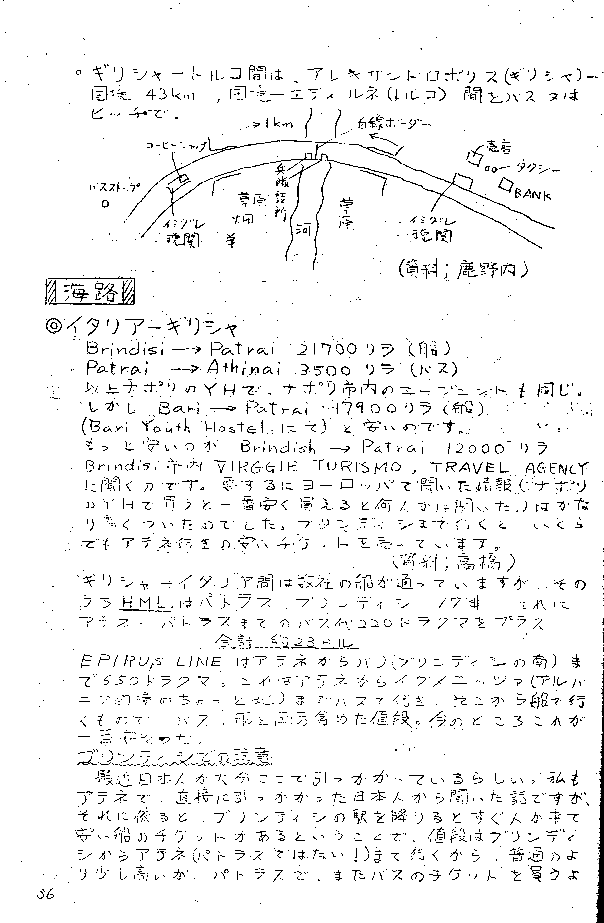 ○ギリシャートルコ間は、アレキサンドロポリス(ギリシャ)ー
国境 43km , 国境ーエディルネ(トルコ) 間をバス又は
ヒッチで。
1km 白線ボーダー
コーヒーショップ
売店
タクシー
バスストップ
BANK
イミグレ
税関
草原
畑
草
兵隊詰所
河
草原
イミグレ
税関
(資料; 鹿野内)
海路
◎イタリアーギリシャ
Brindisi → Patrai 21700 リラ (船)
Patrai → Athinai 3500 リラ (バス)
以上ナポリのYHで、ナポリ市内のエージェントも同じ。
しかし Bari → Patrai 17900 リラ (船)
(Bari Youth Hostel にて) と安いのです。
もっと安いのが Brindish → Patrai 12000 リラ
Brindisi 市内 VIRGGIE TURISMO, TRAVEL AGENCY
に聞くカです。要するにヨーロッパで聞いた情報(ナポリ
のYHで買うと一番安く買えると何人かに聞いた)はかな
り高くついたのでした。ブリンディシまで行くと、いくら
でもアテネ行きの安いチケットを売っています。
(資料; 高橋)
ギリシャーイタリア間は数社の船が通っていますが、その
うち HML はパトラス ブリンディシ 17$ これに
アテネ パトラスまでのバス代220ドラクマをプラス
合計 約23ドル
EPIRUS LINE はアテネからバリ(ブリンディシの南)ま
で550ドラクマ。これはアテネからイグメニッツァ(アルバ
ニア国境のちょっと北)までバスで行き、そこから船で行
くもので、バス、船と両方含めた値段。今のところこれが
一番安かった。
ブリンディシでの注意
最近日本人が大分ここで引っかかっているらしい。私も
アテネで、直接に引っかかった日本人から聞いた話ですが、
それに依ると、ブリンディシの駅を降りるとすぐ人が来て
安い船のチケットがあるということで、値段はブリンディ
シからアテネ(パトラスではない!)まで行くから、普通のよ
り少し高いが、パトラスで、またバスのチケットを買うよ
36